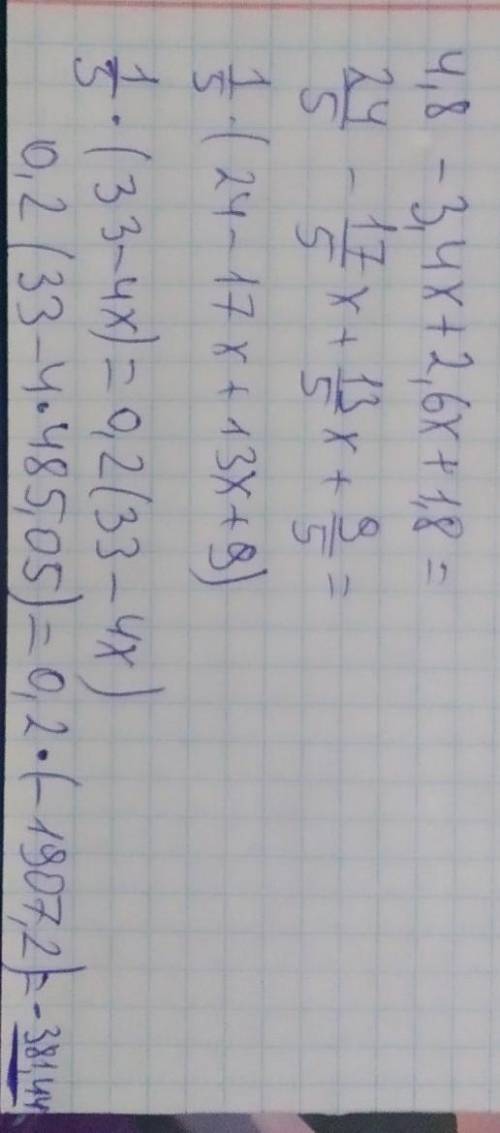 4,8 - 3,4x + 2,6x + 1,8 =
24/5 - 17/5 x + 13/5 x + 9/5 =
1/5 · (24 - 17x + 13x + 9)
1/5 · (33 - 4x) = 0,2(33 - 4x)
0,2(33 - 4 · 485,05) = 0,2 · (-1907,2) = -381,44